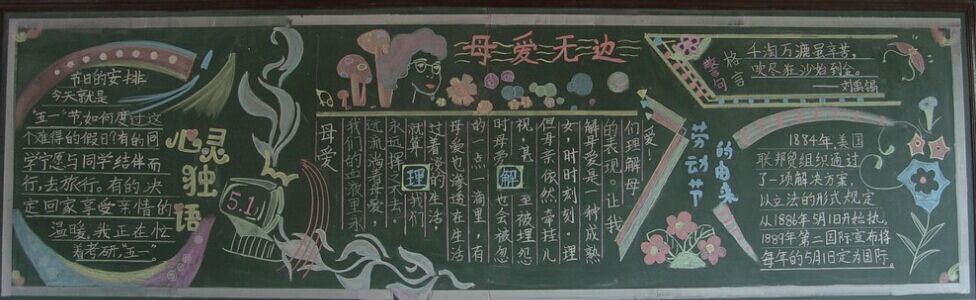 节日的安排
今天就是
"五一"节,如何度过这
个难得的假日!有的同
学宁愿与同学结伴而
行,去旅行。有的决
定回家享受亲情的
温暖,我正在忙
着考研,"五一"。
心灵独语
5.1
母爱无边
爱!
们理解母
的表现。让我
解母爱是一种成熟
如一,时时刻刻。理
但母亲依然牵挂儿
视,甚至被埋怨
时母爱也会被忽
的一点一滴里,有
母爱也渗透在生活
过着爱的生活,
就算我们
永远摆不去,
远流淌着母爱,
我们的血液里永
母爱
理解
警句
格言
千淘万漉虽辛苦,
吹尽狂沙始到金。
——刘禹锡
劳动节
的由来
1884年,美国
联邦贸组织通过
了一项解决方案,
以立法的形式规定
从1886年5月1日开始执,
1889年第二国际宣布将
每年的5月1日定为国际。